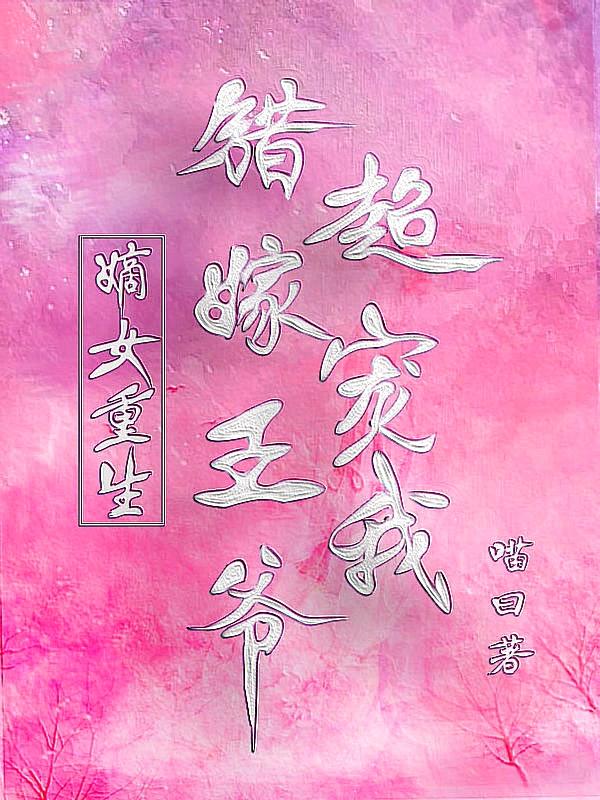 嫡女重生
错嫁王爷
超宠我
喵曰著